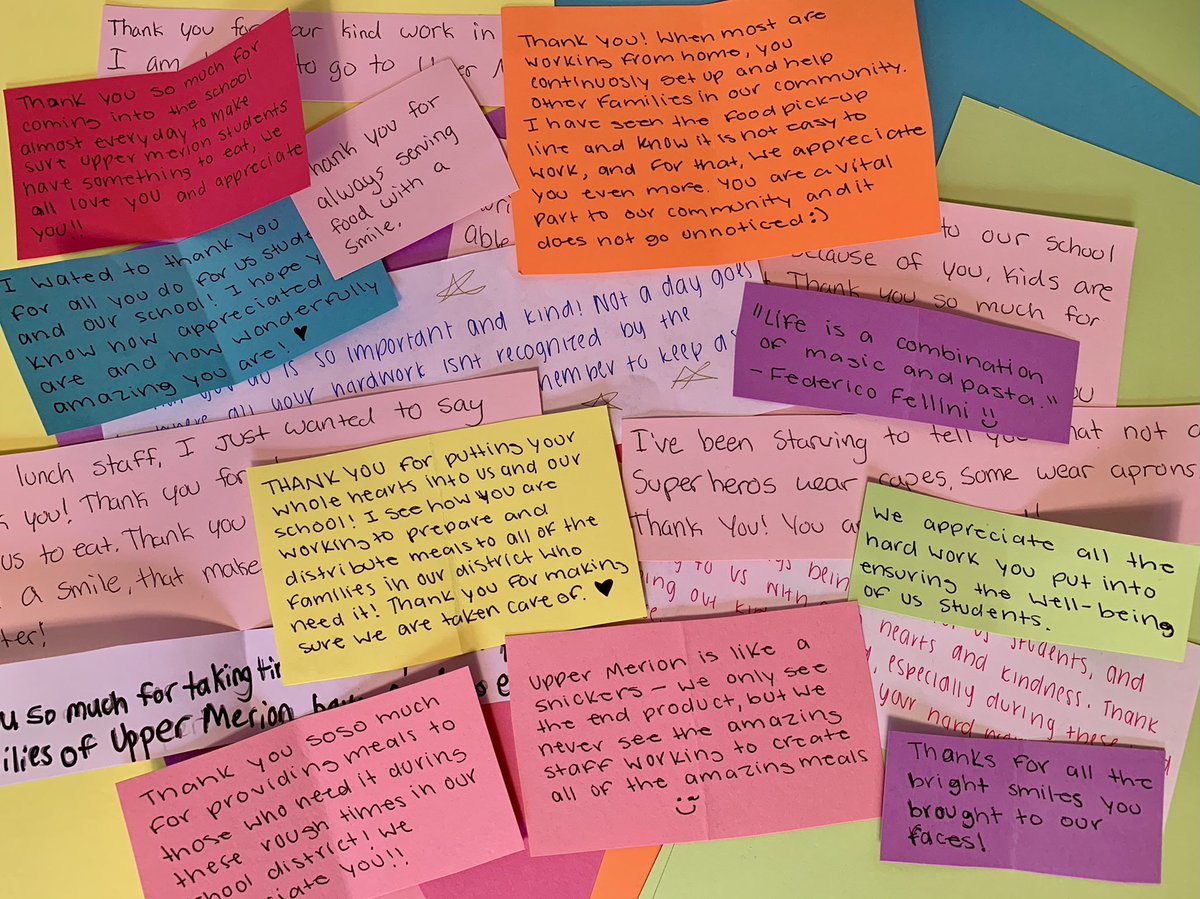 Thank you for your kind work in
I am to go to
Thank you so much for
coming into the school
almost every day to make
sure upper merion students
have something to eat, we
all love you and appreciate
you!!
hank you for
always serving
food with a
smile.
Thank you! When most are
working from home, you
continuosly set up and help
other families in our community.
I have seen the food pick-up
line and know it is not easy to
work, and for that, we appreciate
you even more. You are a vital
part to our community and it
does not go unnoticed :)
able
I wated to thank you
for all you do for us stude
and our school! I hope y
know how appreciated
are and how wonderfully
amazing you are! ♥
is so important and kind! Not a day goes
where all your hardwork isnt recognized by the
member to keep a
to our school
ecause of you, kids are
Thank you so much for
"Life is a combination
of magic and pasta."
- Federico Fellini
lunch staff, I just wanted to say
k you! Thank you for
us to eat. Thank you
a smile, that make
ter!
THANK YOU for putting your
whole hearts into us and our
school! I see how you are
working to prepare and
distribute meals to all of the
families in our district who
need it! Thank you for making
sure we are taken care of. ♥
I've been starving to tell you that not a
Superheros wear capes, some wear aprons
Thank You! You a
We appreciate all the
hard work you put into
ensuring the well-being
of us students.
to us with
ing out kin
students, and
hearts and kindness. Thank
, especially during these
your hard
u so much for taking ti
ilies of Upper Merion ha
Thank you soso much
for providing meals to
those who need it during
these rough times in our
school district! We
ciate you!!
Upper Merion is like a
snickers - we only see
the end product, but we
never see the amazing
staff working to create
all of the amazing meals
Thanks for all the
bright smiles you
brought to our
faces!